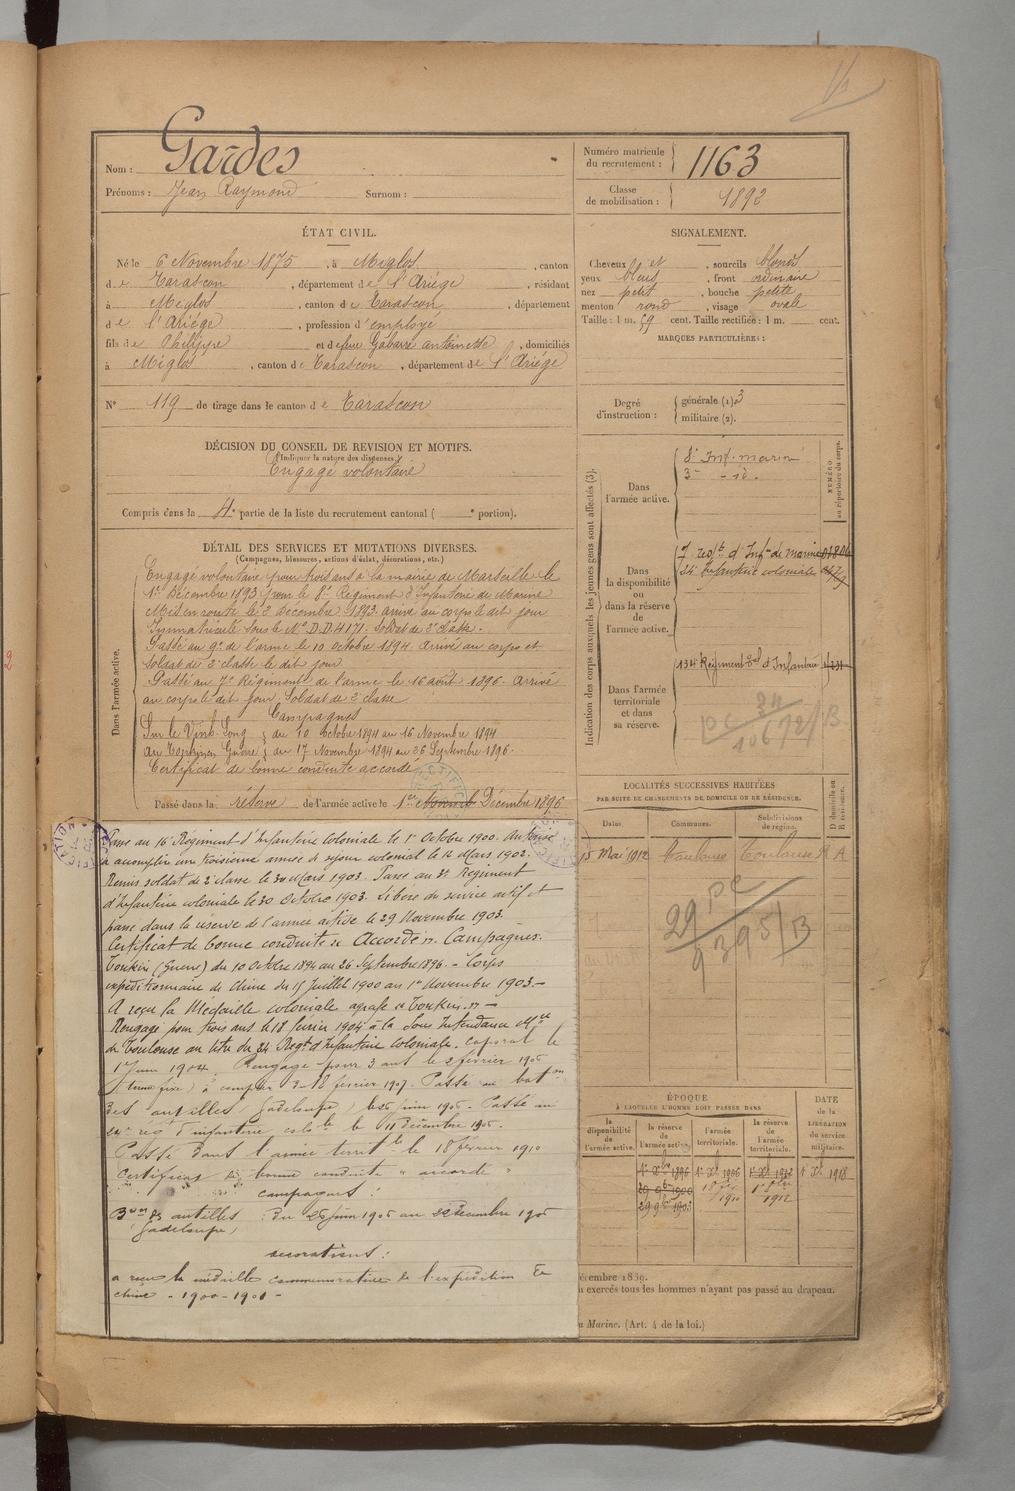 Nom : Gardes
Prénoms : Jean Raymond Surnom :
Numéro matricule du recrutement : 1163
Classe de mobilisation : 1892
ÉTAT CIVIL.
Né le 6 Novembre 1875, à Miglos, canton
de Tarascon, département de l'Ariége, résidant
à Miglos, canton de Tarascon, département
de l'Ariége, profession d'employé
fils de Philippe et de feue Gabarre Antoinette, domiciliés
à Miglos, canton de Tarascon, département de l'Ariége
N° 119 de tirage dans le canton de Tarascon
SIGNALEMENT.
Cheveux et, sourcils blonds
yeux bleus, front ordinaire
nez petit, bouche petite
menton rond, visage ovale
Taille : 1 m. 59 cent. Taille rectifiée : 1 m. cent.
MARQUES PARTICULIÈRES :
Degré d'instruction : générale (1) 3
militaire (2).
DÉCISION DU CONSEIL DE REVISION ET MOTIFS.
(Indiquer la nature des dispenses.)
Engagé volontaire
Compris dans la 4e partie de la liste du recrutement cantonal ( e portion).
DÉTAIL DES SERVICES ET MUTATIONS DIVERSES.
(Campagnes, blessures, actions d'éclat, décorations, etc.)
Dans l'armée active.
Engagé volontaire pour trois ans à la mairie de Marseille le
1er Décembre 1893 pour le 8e Régiment d'Infanterie de Marine
Mis en route le 2 Décembre 1893. arrivé au corps le dit jour
Immatriculé sous le N° D.D.4171. Soldat de 2e classe.
Passé au 9e de l'arme le 10 Octobre 1894 arrivé au corps et
soldat de 2e classe le dit jour
Passé au 7e Régiment de l'arme le 16 août 1896. arrivé
au corps le dit jour, Soldat de 2e classe
Campagnes
Sur le Vinh-Long } du 10 Octobre 1894 au 16 Novembre 1894
au Tonkin en Guerre } du 17 Novembre 1894 au 26 Septembre 1896.
Certificat de bonne conduite accordé
Passé dans la réserve de l'armée active le 1er Décembre 1896
Passé au 16e Régiment d'Infanterie Coloniale le 1er Octobre 1900. Autorisé
à accomplir une troisième année de séjour colonial le 12 Mars 1902.
Remis soldat de 2e classe le 30 Mars 1903. Passé au 3e Régiment
d'Infanterie coloniale le 30 Octobre 1903. Libéré du service actif et
passé dans la réserve de l'armée active le 29 Novembre 1903.
Certificat de bonne conduite « Accordé ». Campagnes.
Tonkin (Guerre) du 10 Octobre 1894 au 26 Septembre 1896. - Corps
expéditionnaire de Chine du 15 Juillet 1900 au 1er Novembre 1903. -
A reçu la Médaille coloniale agrafe « Tonkin » -
Rengagé pour trois ans le 18 février 1904 à la Sous Intendance Mre
de Toulouse au titre du 24 Regt d'Infanterie Coloniale. Caporal le
1er Juin 1904. Rengagé pour 3 ans le 2 février 1906
à compter du 18 février 1907. Passé au baton
des antilles (Gadeloupe) le 26 Juin 1906. Passé au
24e reg d'infanterie colle le 11 décembre 1906.
Passé dans l'armée territle le 18 février 1910
Certificat de bonne conduite « accordé »
campagnes :
Bon des antilles : Du 26 Juin 1906 au 22 décembre 1906
Gadeloupe)
décorations :
a reçu la médaille commémorative de l'expédition de
chine - 1900-1901 -
Indication des corps auxquels les jeunes gens sont affectés (3).
NUMÉRO au répertoire du corps.
Dans l'armée active.
8e Inf. marine
3e - id.
Dans la disponibilité ou dans la réserve de l'armée active.
7 regt d'Infie de marine
24e Infanterie coloniale
Dans l'armée territoriale et dans sa réserve.
134 Régiment tal d'Infanterie
LOCALITÉS SUCCESSIVES HABITÉES
PAR SUITE DE CHANGEMENTS DE DOMICILE OU DE RÉSIDENCE.
Dates. Communes. Subdivisions de région. D domicile ou R résidence.
15 Mai 1912 Toulouse Toulouse
ÉPOQUE
À LAQUELLE L'HOMME DOIT PASSER DANS
la disponibilité de l'armée active.
la réserve de l'armée active.
l'armée territoriale.
la réserve de l'armée territoriale.
DATE de la LIBÉRATION du service militaire.
1er Xbre 1896 1er Xbre 1906 1er Xbre 1912 1er Xbre 1918
29 9bre 1900 18 fév 1910 1912
29 9bre 1903
écembre 1889.
n exercés tous les hommes n'ayant pas passé au drapeau.
a Marine. (Art. 4 de la loi.)